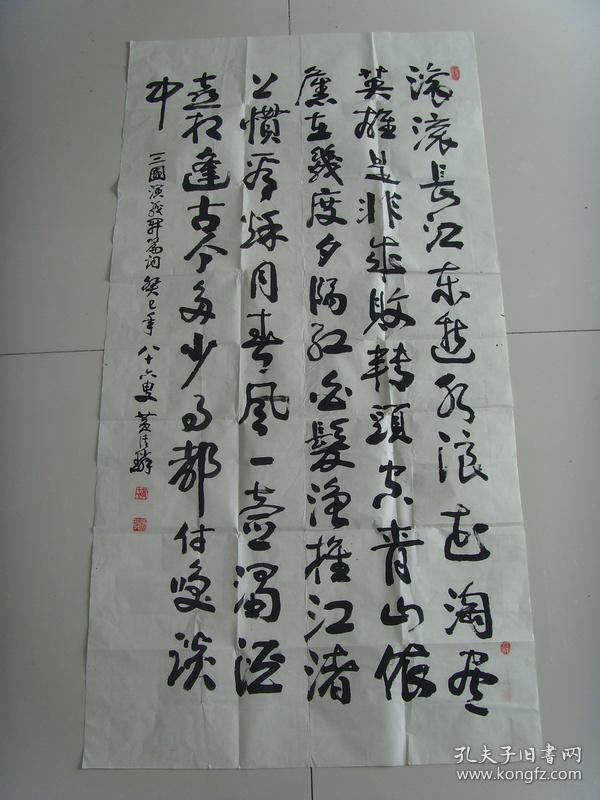 滚滚長江东逝水浪花淘尽
英雄是非成敗轉頭空青山依
舊在幾度夕陽红白髮渔樵江渚
上慣看秋月春風一壶濁酒
喜相逢古今多少事都付笑談
中
三國演義开篇词 癸巳年 八十六叟 黄
孔夫子旧书网
www.kongfz.com